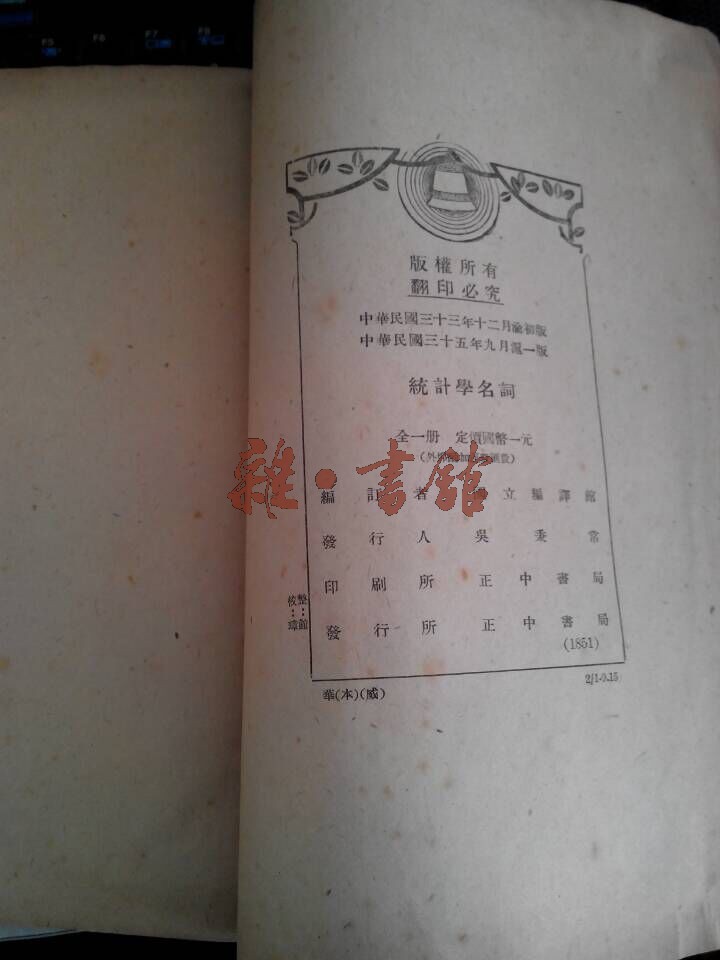 F5 F6 F7 F8
版權所有
翻印必究
中華民國三十三年十二月渝初版
中華民國三十五年九月滬一版
統計學名詞
全一册 定價國幣一元
(外埠酌加運費滙費)
雜·書館
編訂者 國立編譯館
發行人 吳秉常
印刷所 正中書局
發行所 正中書局
(1851)
整:館
校:璋
華(本)(威)
2/1-0.15